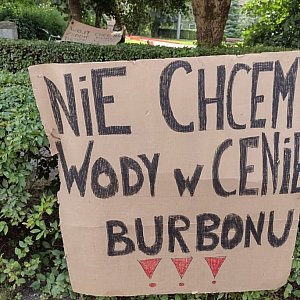 NiE CHCEM
WODY W CENIE
BURBONU
!!!